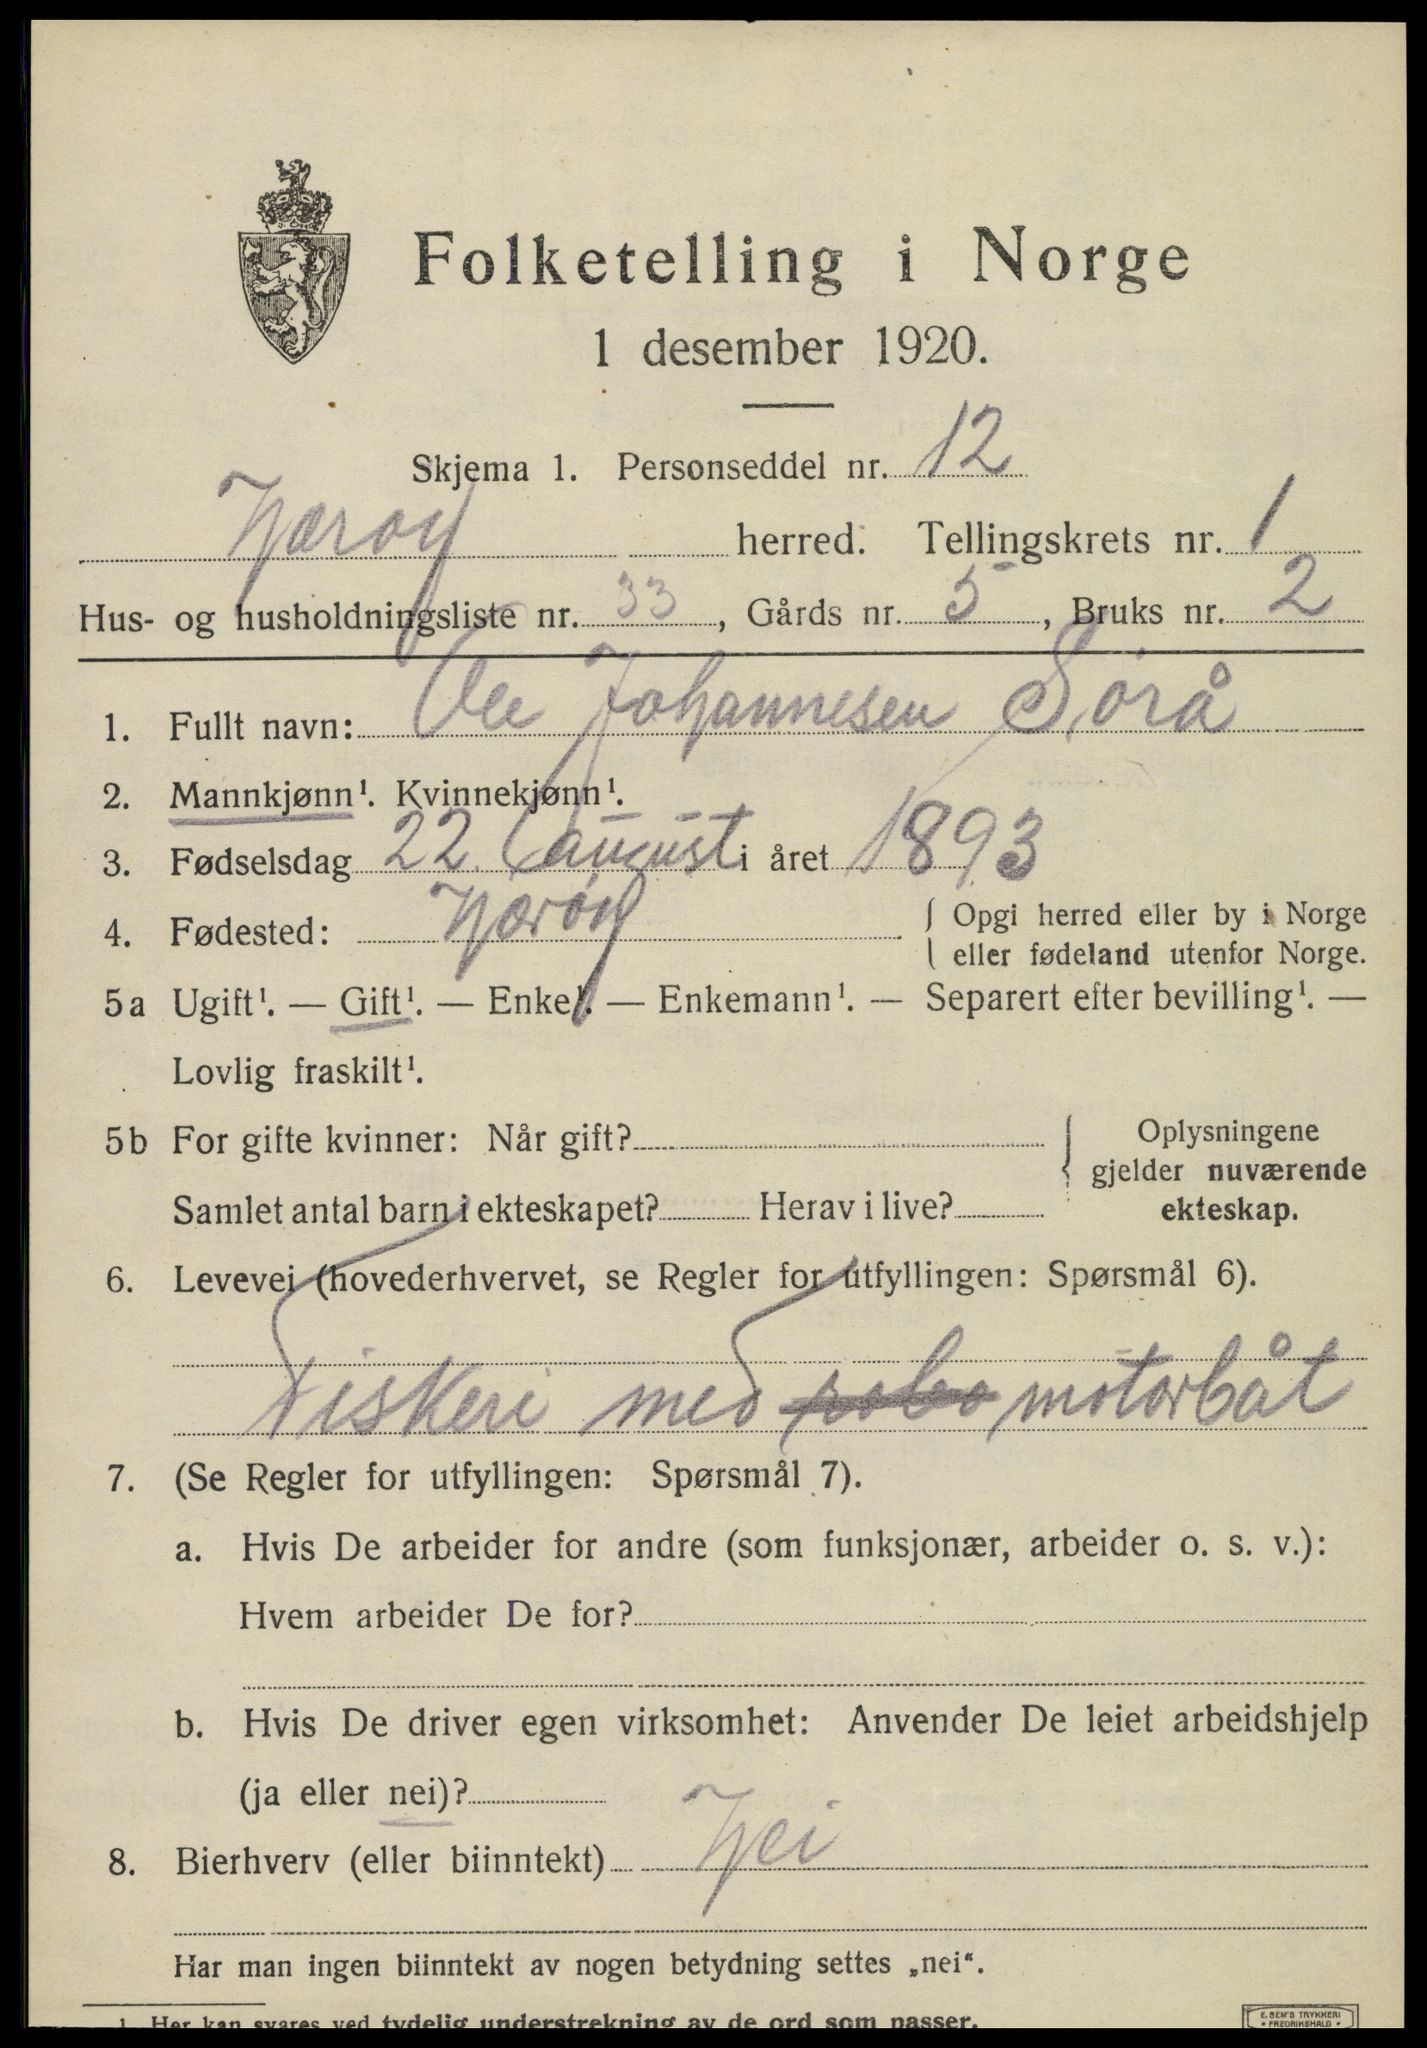 Folketelling i Norge
1 desember 1920.
Skjema 1. Personseddel nr. 12
Nærøy herred. Tellingskrets nr. 1
Hus- og husholdningsliste nr. 33, Gårds nr. 5, Bruks nr. 2
1. Fullt navn: Ole Johannesen Sörå
2. Mannkjønn¹. Kvinnekjønn¹.
3. Fødselsdag 22. August i året 1893
4. Fødested: Nærøy { Opgi herred eller by i Norge
eller fødeland utenfor Norge.
5a Ugift¹. — Gift¹. — Enke¹. — Enkemann¹. — Separert efter bevilling¹. —
Lovlig fraskilt¹.
5b For gifte kvinner: Når gift? { Oplysningene
gjelder nuværende
Samlet antal barn i ekteskapet? Herav i live? ekteskap.
6. Levevei (hovederhvervet, se Regler for utfyllingen: Spørsmål 6).
Fiskeri med motorbåt
7. (Se Regler for utfyllingen: Spørsmål 7).
a. Hvis De arbeider for andre (som funksjonær, arbeider o. s. v.):
Hvem arbeider De for?
b. Hvis De driver egen virksomhet: Anvender De leiet arbeidshjelp
(ja eller nei)?
8. Bierhverv (eller biinntekt) Nei
Har man ingen biinntekt av nogen betydning settes „nei“.
1. Her kan svares ved tydelig understrekning av de ord som passer.
E. SEM'S TRYKKERI
• FREDRIKSHALD •